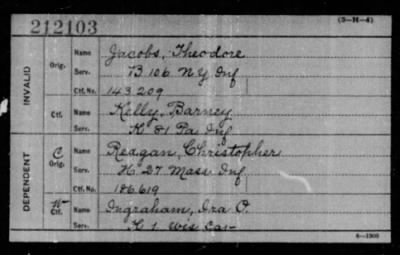 212103
(3-M-4)
INVALID
Orig.
Name Jacobs, Theodore
Serv. B 106 N Y Inf
Ctf. No. 143209
Ctf.
Name Kelly, Barney
Serv. K 81 Pa Inf
DEPENDENT
C Orig.
Name Reagan, Christopher
Serv. H 27 Mass Inf
Ctf. No. 186619
W Ctf.
Name Ingraham, Ira O.
Serv. K 1 Wis Cav